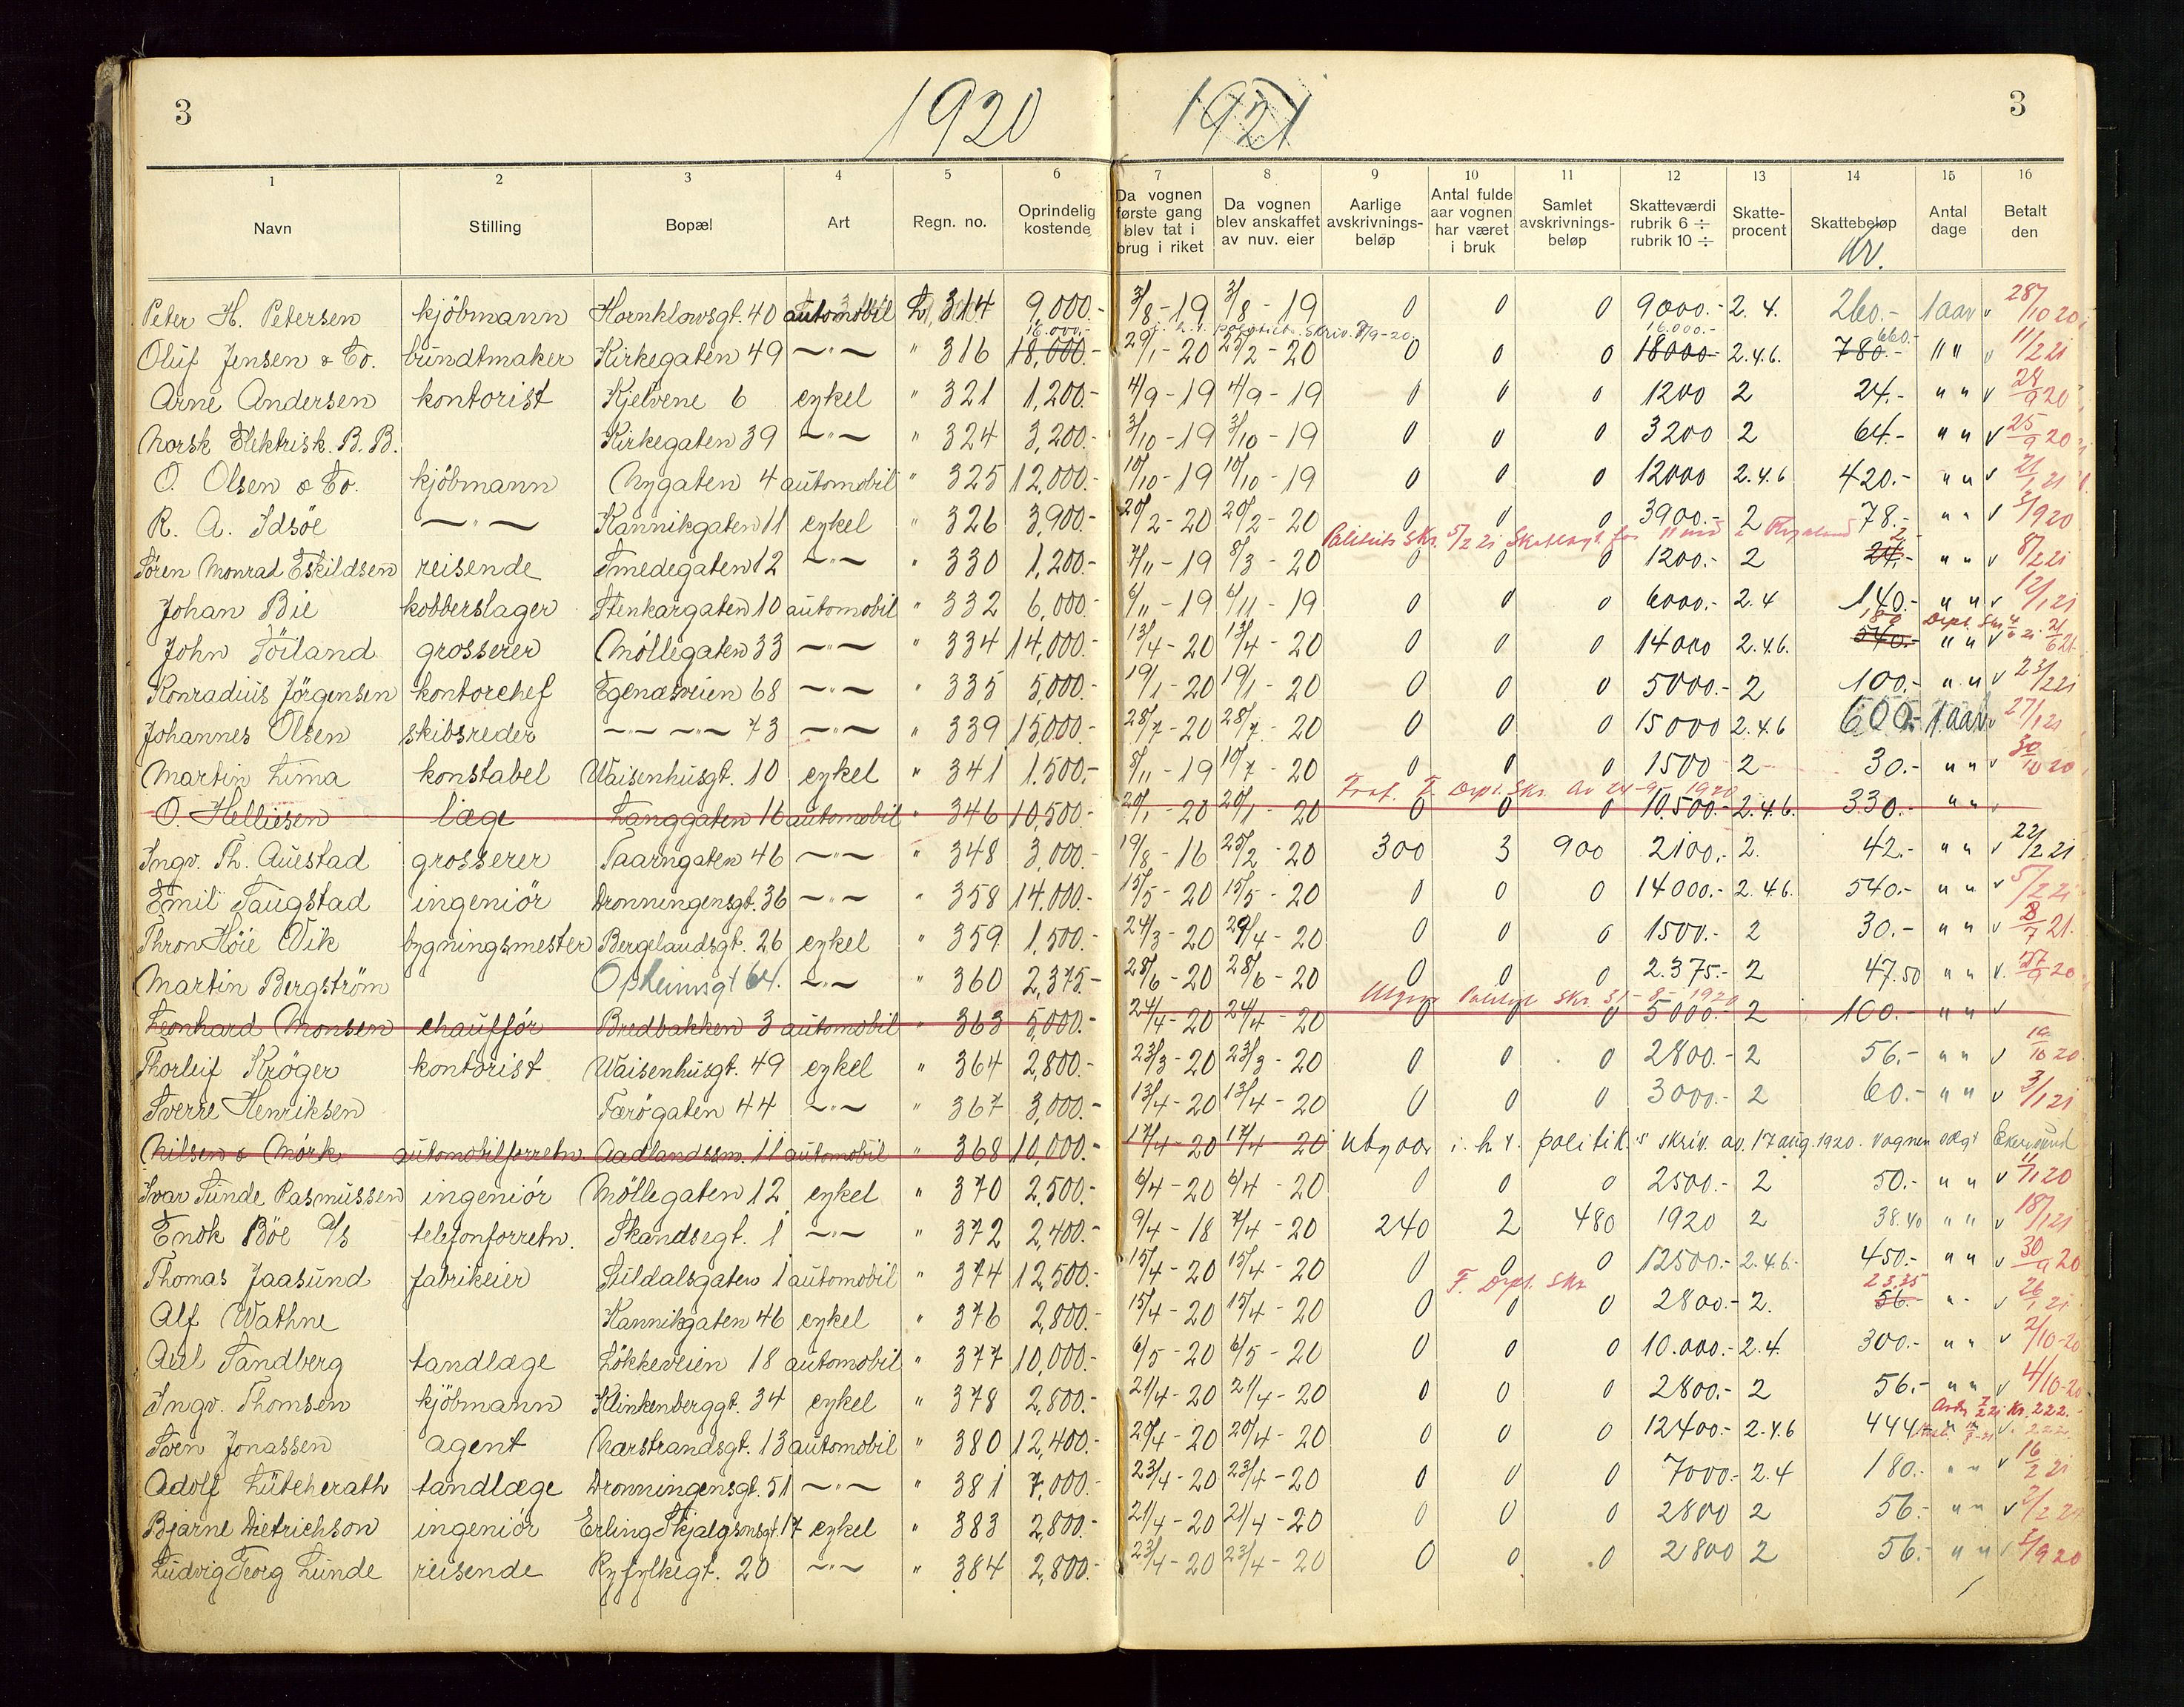 3 1920 1921 3
1 2 3 4 5 6 7 8 9 10 11 12 13 14 15 16
Navn Stilling Bopæl Art Regn. no. Oprindelig kostende Da vognen første gang blev tat i brug i riket Da vognen blev anskaffet av nuv. eier Aarlige avskrivnings-beløp Antal fulde aar vognen har været i bruk Samlet avskrivnings-beløp Skatteværdi rubrik 6 ÷ rubrik 10 ÷ Skatte-procent Skattebeløp Kr. Antal dage Betalt den
Peter H. Petersen kjöbmann Hornklowsgt. 40 automobil L, 314 9,000.- 3/8-19 3/8-19 0 0 0 9000.- 2.4. 260.- 1 aar v 28/10 20
16.000.- i. h. t. politiets skriv. 7/9-20 16.000.- 660.-
Oluf Jensen & Co. bundtmaker Kirkegaten 49 -"- " 316 18,000.- 29/1-20 25/2-20 0 0 0 18000- 2.4.6. 780.- " " v 11/2 21
Arne Andersen kontorist Kjelvene 6 cykel " 321 1,200.- 4/9-19 4/9-19 0 0 0 1200 2 24.- " " v 24/9 20
Norsk Elektrisk. B. B. Kirkegaten 39 -"- " 324 3,200.- 3/10-19 3/10-19 0 0 0 3200 2 64.- " " v 25/9 20
O. Olsen & Co. kjöbmann Nygaten 4 automobil " 325 12,000.- 10/10-19 10/10-19 0 0 0 12000 2.4.6 420.- " " v 21/1 21
R. A. Idsöe -"- Kannikgaten 11 cykel " 326 3,900.- 20/2-20 20/2-20 0 0 0 3900.- 2 78.- " " v 3/9 20
Politiets Skr. 5/2 21 Skattlagt for 11 mnd i Rogaland 2
Sören Monrad Eskildsen reisende Smedegaten 12 -"- " 330 1,200.- 7/11-19 8/3-20 0 0 0 1200.- 2 24.- " " v 8/2 21
Johan Bie kobberslager Stenkargaten 10 automobil " 332 6,000.- 6/11-19 6/11-19 0 0 0 6000.- 2.4 140.- " " v 12/1 21
180 Dept. Skr.
John Söiland grosserer Möllegaten 33 -"- " 334 14,000.- 13/4-20 13/4-20 0 0 0 14000 2.4.6. 540.- " " v 21/6 21
Konradius Jörgensen kontorchef Egenæsveien 68 -"- " 335 5,000.- 19/1-20 19/1-20 0 0 0 5000.- 2 100.- " " v 23/2 21
Johannes Olsen skibsreder -"- -"- 73 -"- " 339 15,000.- 28/7-20 28/7-20 0 0 0 15000 2.4.6 600.- 1 aar v 27/1 21
Martin Lima konstabel Waisenhusgt. 10 cykel " 341 1.500.- 8/11-19 10/7-20 0 0 0 1500 2 30.- " " v 30/10 20
F. Dept. Skr. av 24-9-1920
O. Helliesen læge Langgaten 16 automobil " 346 10,500.- 20/1-20 20/1-20 0 0 0 10.500.- 2.4.6. 330.- " " v
Ingv. Th. Auestad grosserer Taarngaten 46 -"- " 348 3,000.- 19/8-16 25/2-20 300 3 900 2100.- 2. 42.- " " v 22/2 21
Emil Saugstad ingeniör Dronningensgt. 36 -"- " 358 14.000.- 15/5-20 15/5-20 0 0 0 14000.- 2.4.6. 540.- " " v 5/2 21
Thron Höie Vik bygningsmester Bergelandsgt. 26 cykel " 359 1.500.- 24/3-20 29/4-20 0 0 0 1500.- 2 30.- " " v 8/7 21.
Martin Bergström Opheimsgt 64. -"- " 360 2,375.- 28/6-20 28/6-20 0 0 0 2.375.- 2 47.50 " " v. 27/9 20
Utgaar Politiet Skr. 31-8-1920
Leonhard Monsen chauffór Bredbakken 3 automobil " 363 5,000.- 24/4-20 24/4-20 0 0 0 5000.- 2 100.- " " v
Thorleif Kröger kontorist Waisenhusgt. 49 cykel " 364 2,800.- 23/3-20 23/3-20 0 0 0 2800.- 2 56.- " " v 19/10 20
Sverre Henriksen Færögaten 44 -"- " 367 3,000.- 13/4-20 13/4-20 0 0 0 3000.- 2 60.- " " v 3/1 21
Nilsen & Mörk automobilforretn. Aadlandssm. 11 automobil " 368 10,000.- 17/4-20 17/4-20 utgaar i. h. t. politik.'s skriv. av. 17 aug. 1920. vognen solgt Ekersund
Ivar Sunde Rasmussen ingeniör Möllegaten 12 cykel " 370 2,500.- 6/4-20 6/4-20 0 0 0 2500.- 2 50.- " " v 11/1 20
Enok Böe A/S telefonforretn. Skandsegt. 1 -"- " 372 2,400.- 9/4-18 7/4-20 240 2 480 1920 2 38.40 " " v 18/1 21
Thomas Jaasund fabrikeier Lildalsgaten 1 automobil " 374 12,500.- 15/4-20 15/4-20 0 0 0 12500.- 2.4.6.- 450.- " " v 30/9 20
F. Dept. Skr. 23.35
Alf Wathne Kannikgaten 46 cykel " 376 2,800.- 15/4-20 15/4-20 0 0 0 2800.- 2. 56.- " " v 26/1 21
Axel Sandberg tandlæge Lökkeveien 18 automobil " 377 10,000.- 6/5-20 6/5-20 0 0 0 10.000.- 2.4. 300.- " " v 2/10-20
Ingv. Thomsen kjöbmann Klinkenberggt. 34 cykel " 378 2,800.- 21/4-20 21/4-20 0 0 0 2800.- 2 56.- " " v 4/10-20
Avdr. 7/2 21 kr. 222.-
Sven Jonassen agent Nærstrandsgt. 13 automobil " 380 12,400.- 20/4-20 20/4-20 0 0 0 12400.- 2.4.6 444 222
Adolf Lütcherath tandlæge Dronningensgt. 51 -"- " 381 7,000.- 23/4-20 23/4-20 0 0 0 7000.- 2.4 180.- " " v 16/2 21
Bjarne Dietrichson ingeniör Erling Skjalgsonsgt. 17 cykel " 383 2,800.- 21/4-20 21/4-20 0 0 0 2800 2 56.- " " v 2/2 21
Ludvig Georg Lunde reisende Ryfylkegt. 20 -"- " 384 2,800.- 23/4-20 23/4-20 0 0 0 2800 2 56.- " " 8/9 20